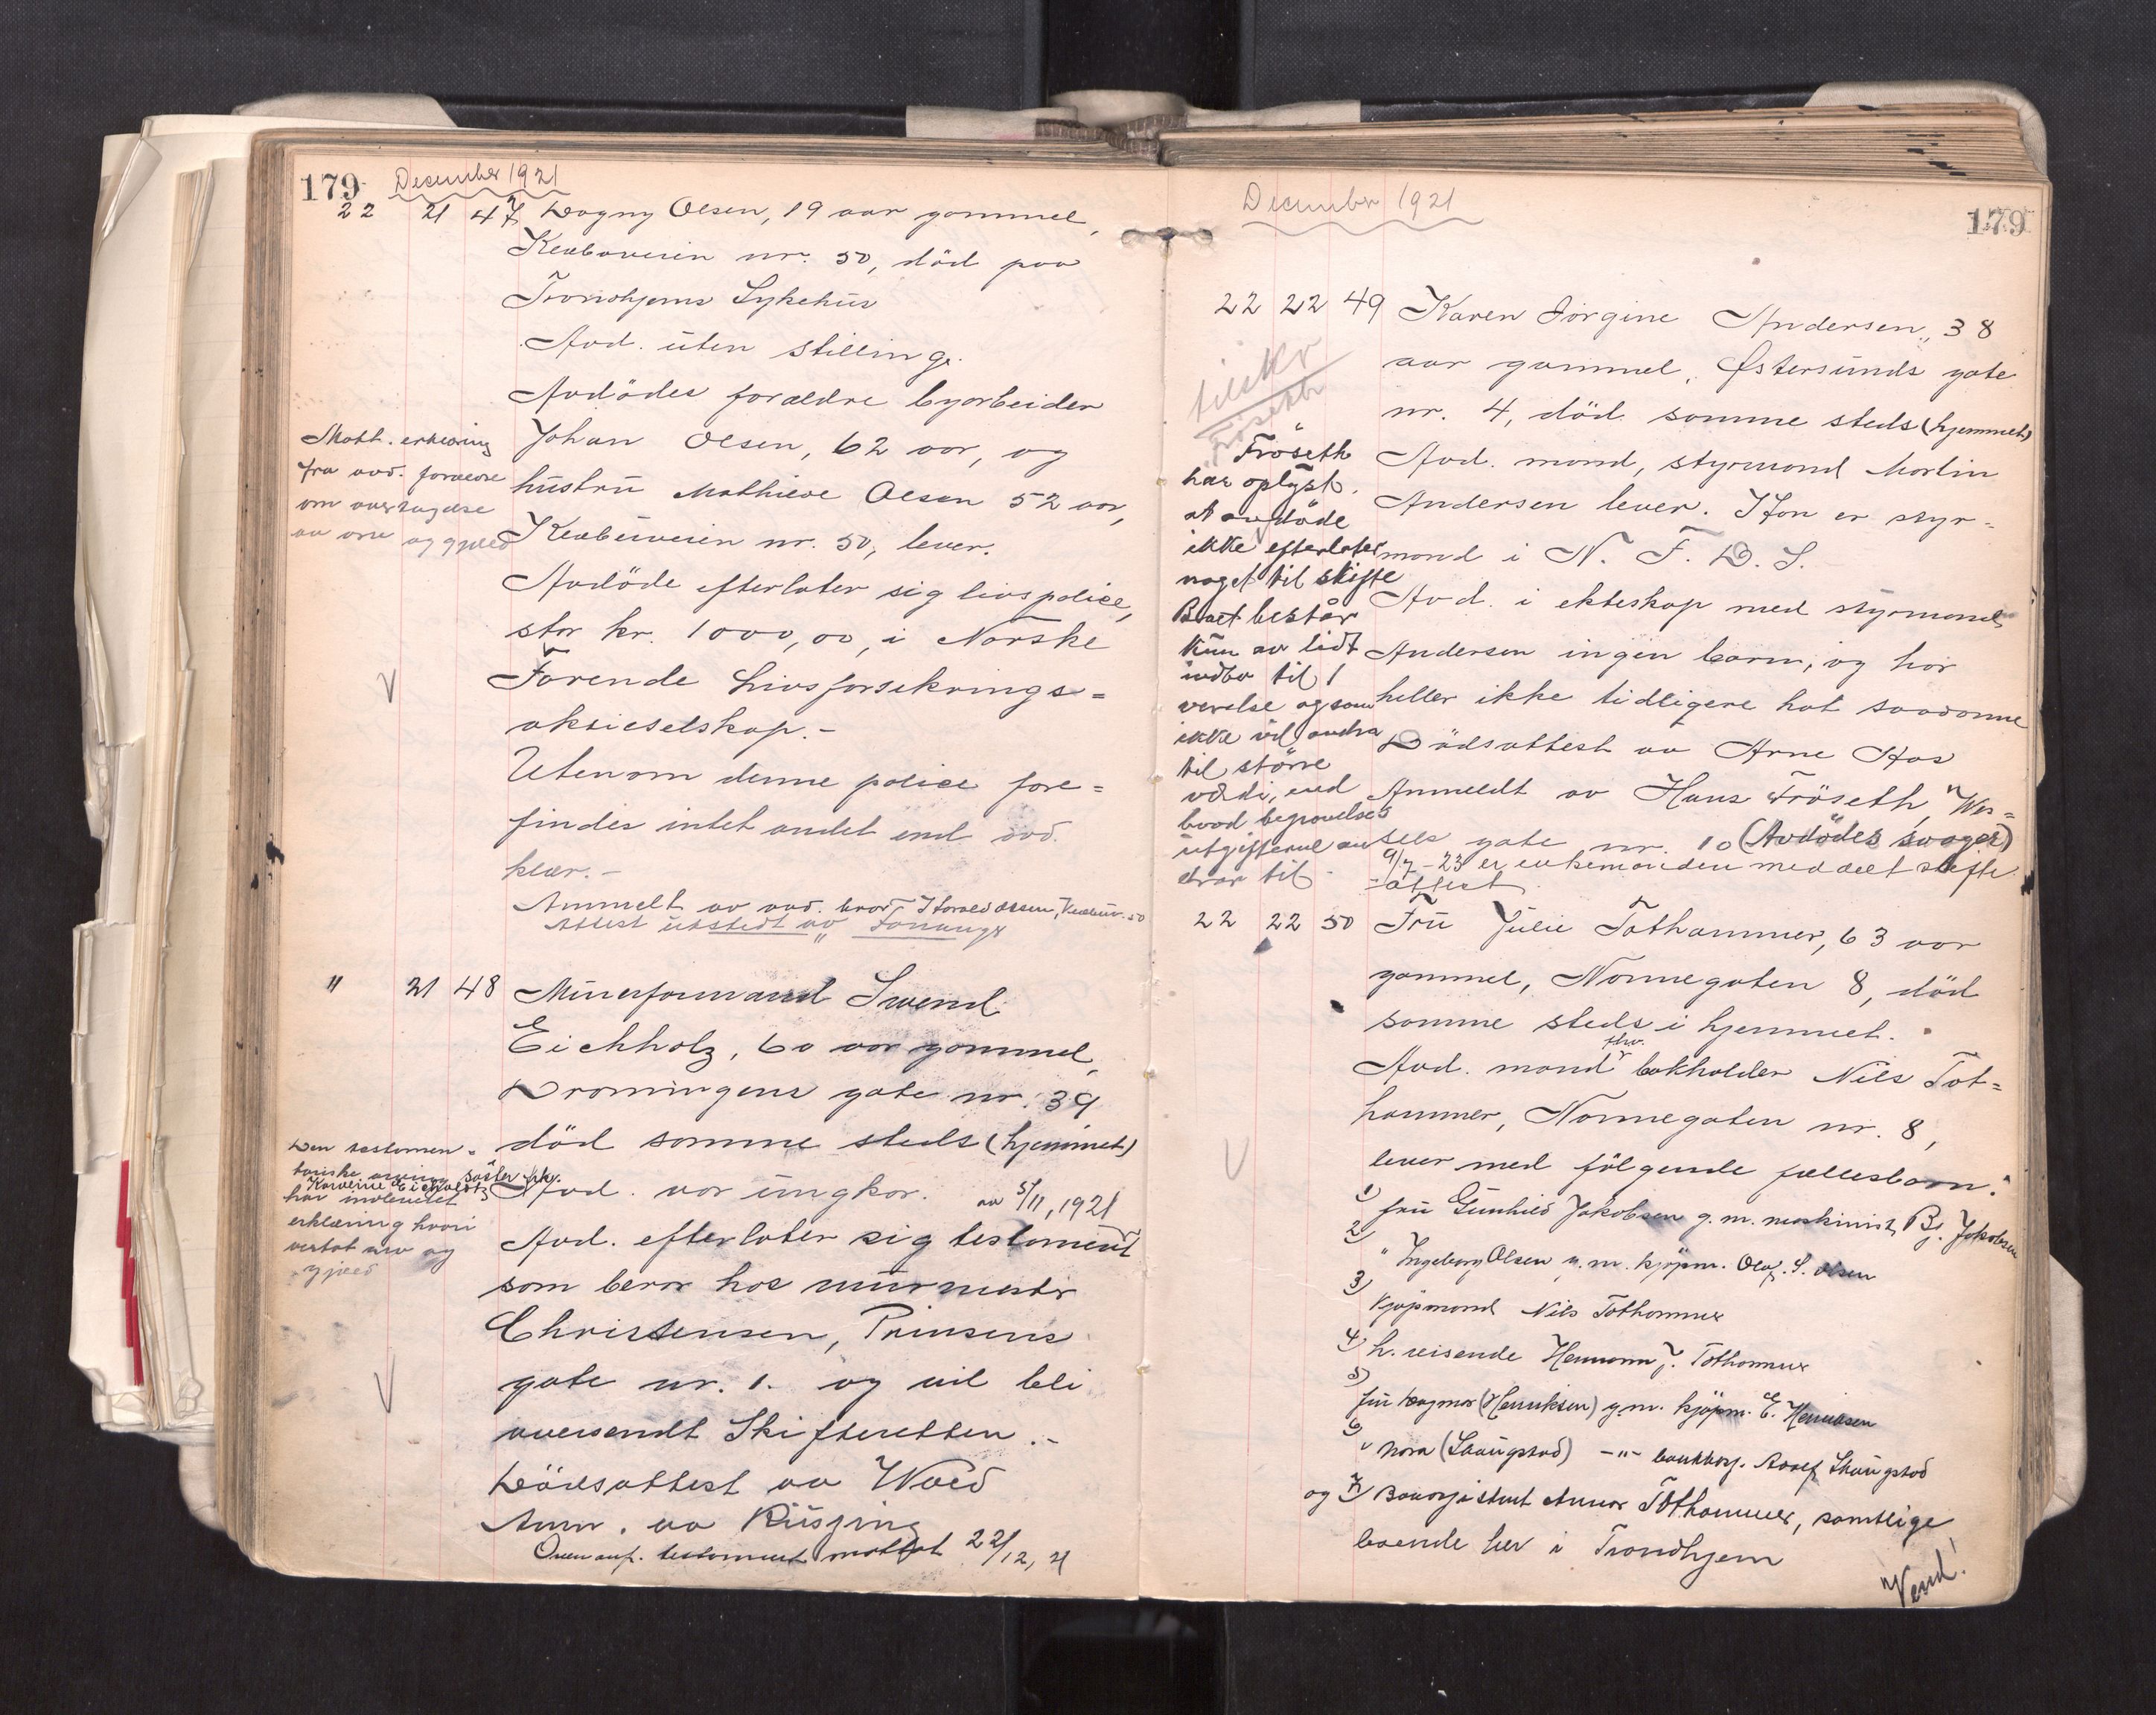 179 December 1921
22 21 47 Dagny Olsen, 19 aar gammel,
Klæbuveien nr. 50, død paa
Trondhjems Sykehus
Avd. uten stilling.
Avdødes forældre byarbeider
Johan Olsen, 62 aar, og
hustru Mathilde Olsen 52 aar,
Klæbuveien nr. 50, lever.
Avdøde efterlater sig livspolice,
stor kr. 1000,00, i Norske
Forende Livsforsikrings=
aksieselskap.-
Utenom denne police fore=
findes intet andet end avd.
klær.-
Anmelt av avd. bror Harald Olsen, Klæbuv. 50
Attest utstedt av
Mott. erklæring
fra avd. forældre
om overtagelse
av arv og gjæld
" 21 48 Murerformand Svend
Eichholz, 60 aar gammel,
Dronningens gate nr. 39
død samme steds (hjemmet)
Avd. var ungkar.
av 5/11, 1921
Avd. efterlater sig testament
som beror hos murmester
Christensen, Prinsens
gate nr. 1. og vil bli
oversendt Skifteretten.-
Dødsattest av Wold
Anm. av Russing
Ovenanf. testament mottat 22/12, 21
Den testamen=
tariske arving søster frk.
Karoline Eichholtz
har innlevert
erklæring hvori
vedtat arv og
gjæld
December 1921
179
22 22 49 Karen Jørgine Andersen, 38
aar gammel, Østersunds gate
nr. 4, død samme steds (hjemmet)
Avd. mand, styrmand Martin
Andersen lever. Han er styr=
mand i N. F. D. S.
Avd. i ekteskap med styrmand
Andersen ingen barn, og har
heller ikke tidligere hat saadanne
Dødsattest av Arne Aas
Anmeldt av Hans Frøseth, Wes=
sels gate nr. 10 (Avdødes svoger)
9/7-23 er enkemanden meddelt skifte
attest
tilskr
Frøseth
Frøseth
har oplyst,
at avdøde
ikke efterlater
noget til skifte
Boet består
kun av lidt
indbo til 1
værelse og som
ikke vil andra
til større
værdi, end
hvad begravelses
utgifterne an
drar til
22 22 50 Fru Julie Tothammer, 63 aar
gammel, Nonnegaten 8, død
samme steds i hjemmet.
Avd. mand fhv. bokholder Nils Tot=
hammer, Nonnegaten nr. 8,
lever med følgende fællesbarn:
1) fru Gunhild Jakobsen g. m. maskinist Bj. Jakobsen
2) " Ingeborg Olsen g. m. kjøpm. Olaf S. Olsen
3) Kjøpmand Nils Tothammer
4) h. reisende Hermann J. Tothammer
5) fru Dagmar (Henriksen) g. m. kjøpm. E. Henriksen
6) " Nora (Skaugstad) -"- bankbog. Adolf Skaugstad
og 7) Bandagist Tothammer, samtlige
boende her i Trondhjem
Vend!